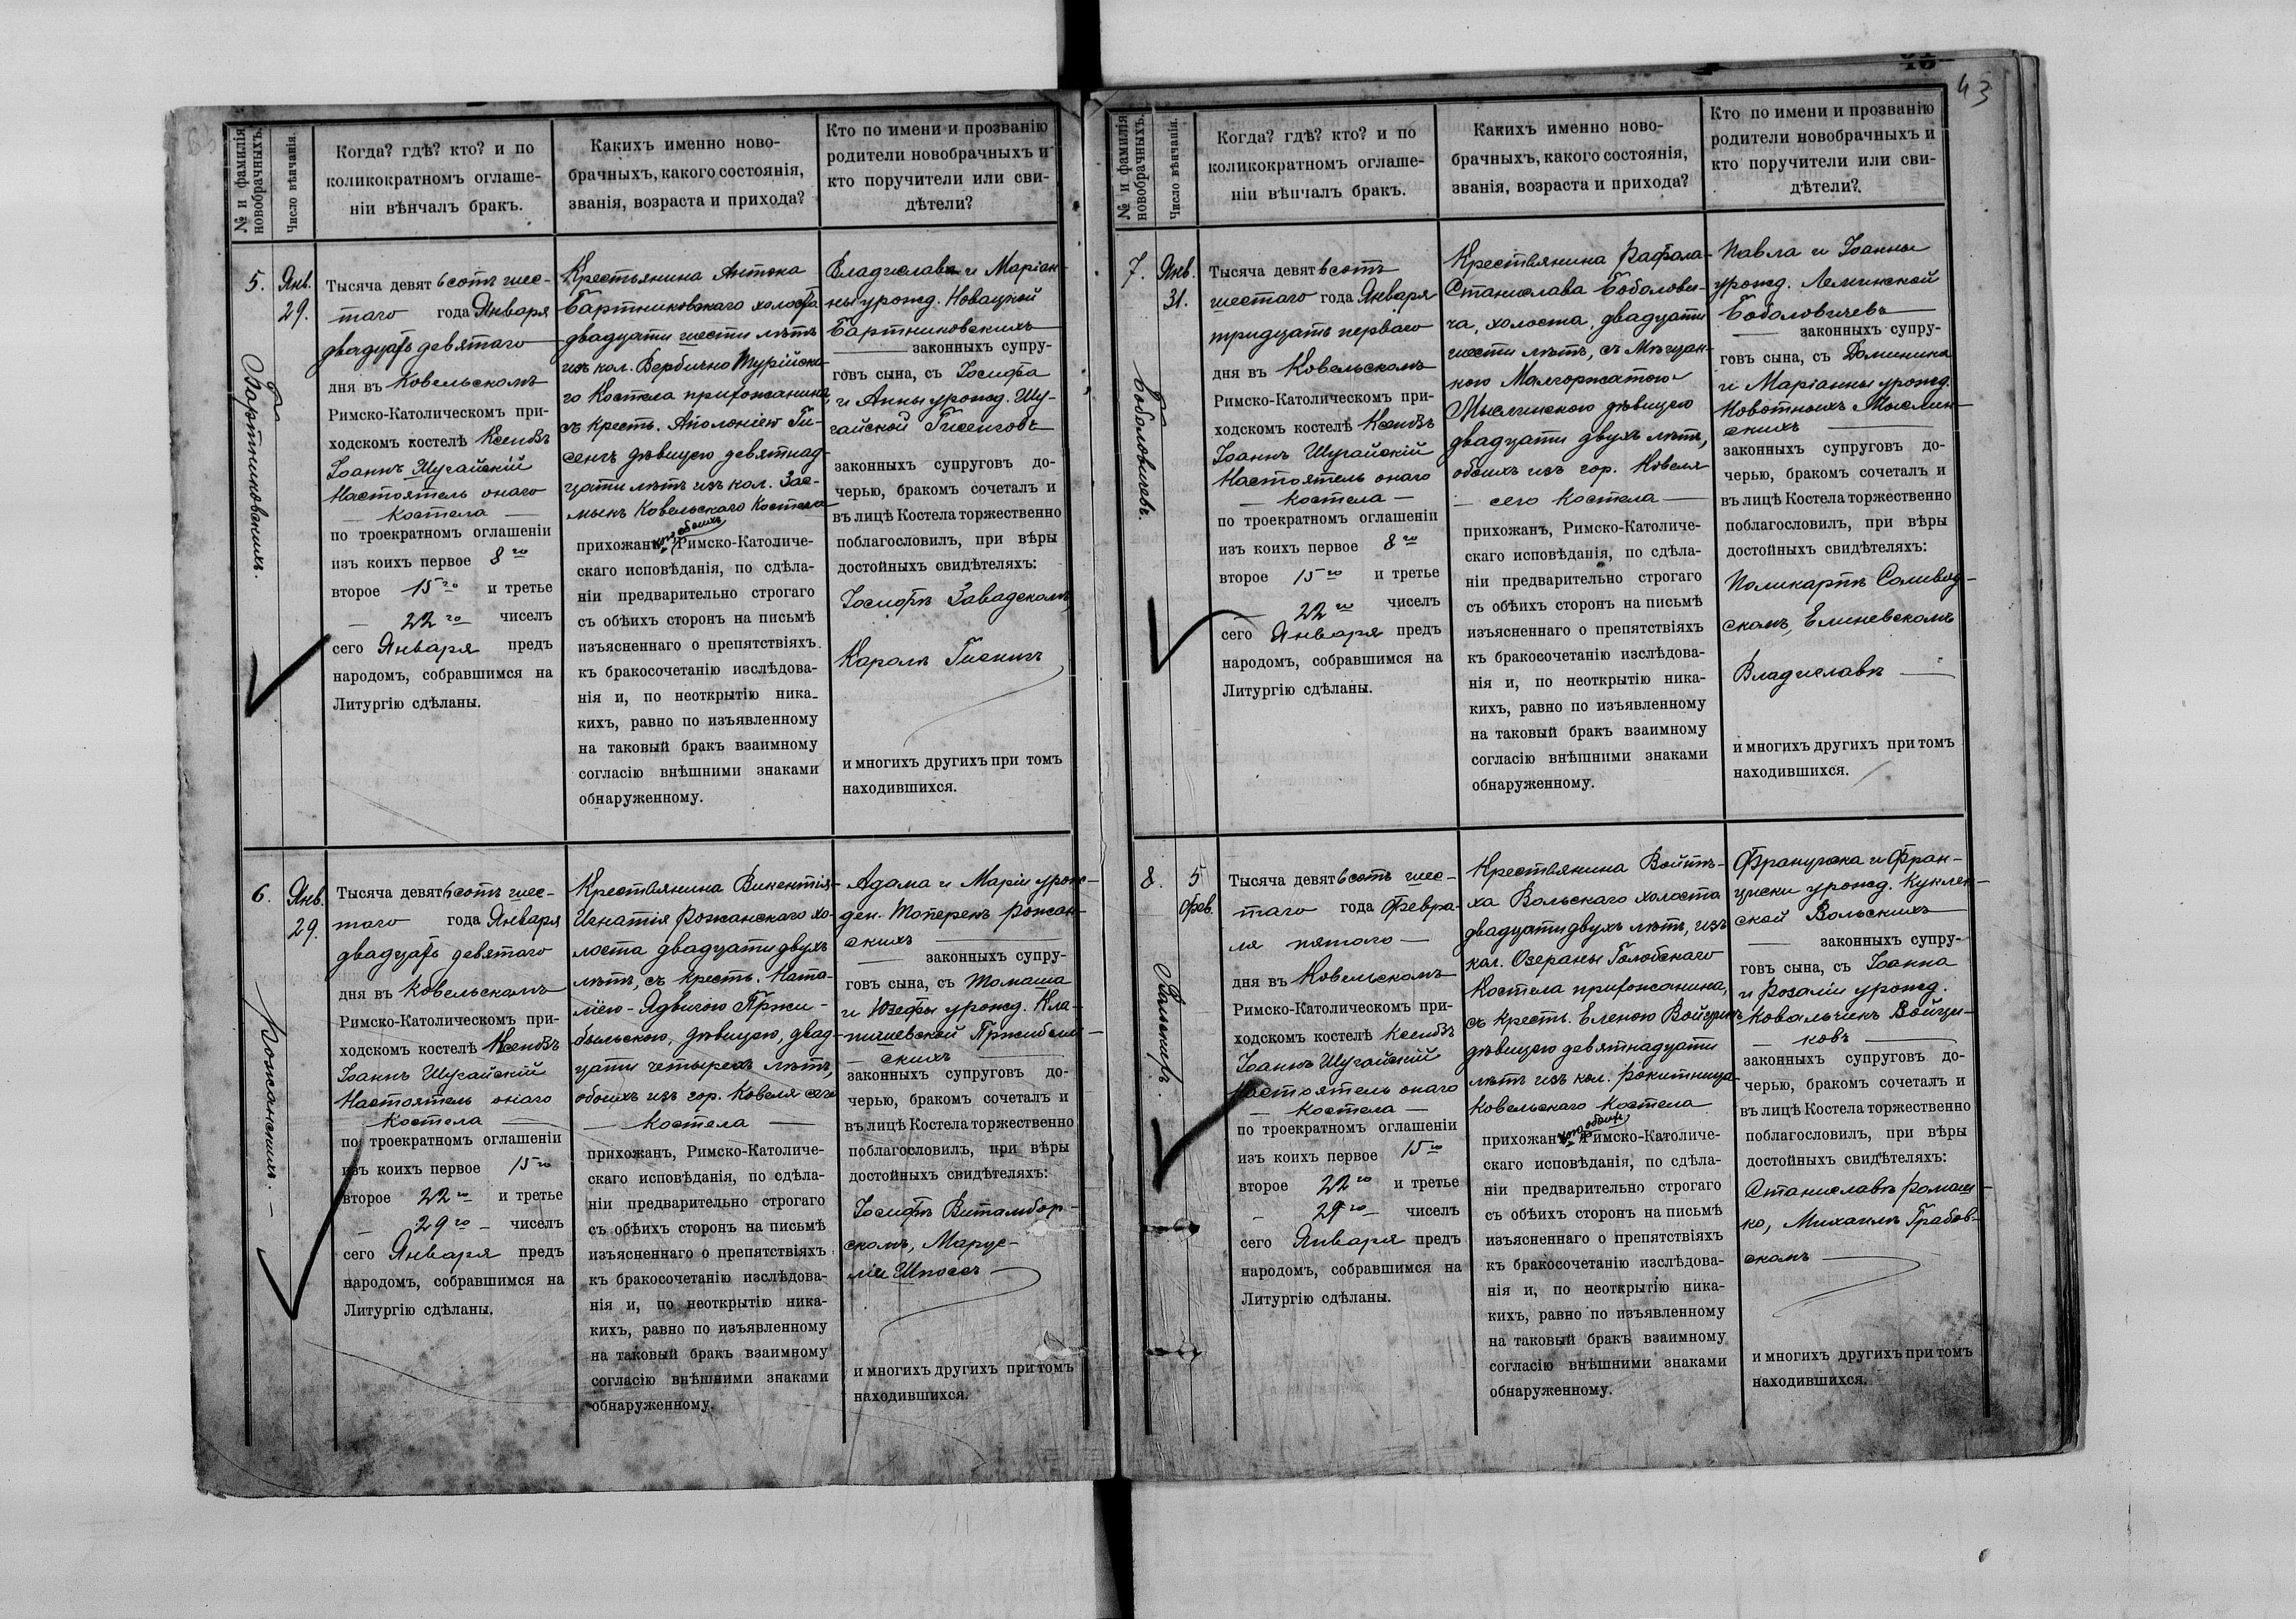 43
№ и фамилія новобрачныхъ.
Число вѣнчанія.
Когда? гдѣ? кто? и по
коликократномъ оглаше-
ніи вѣнчалъ бракъ.
Какихъ именно ново-
брачныхъ, какого состоянія,
званія, возраста и прихода?
Кто по имени и прозванію
родители новобрачныхъ и
кто поручители или сви-
дѣтели?
5.
Янв.
29.
Бартниковскихъ.
Тысяча девятьсотъ шес-
таго года Января
двадцать девятаго
дня въ Ковельскомъ
Римско-Католическомъ при-
ходскомъ костелѣ Ксендзъ
Іоаннъ Шугайскій
Настоятель онаго
— Костела —
по троекратномъ оглашеніи
изъ коихъ первое 8го
второе 15го и третье
— 22го — чиселъ
сего Января предъ
народомъ, собравшимся на
Литургію сдѣланы.
Крестьянина Антона
Бартниковскаго холоста
двадцати шести лѣтъ
изъ кол. Вербично Турійска-
го Костела прихожанина,
съ крест. Аполоніею Ги-
сингъ дѣвицею девятнад-
цати лѣтъ изъ кол. Зас-
мыкъ Ковельскаго Костела
прихожан обоихъ Римско-Католиче-
скаго исповѣданія, по сдѣла-
ніи предварительно строгаго
съ обѣихъ сторонъ на письмѣ
изъясненнаго о препятствіяхъ
къ бракосочетанію изслѣдова-
нія и, по неоткрытію ника-
кихъ, равно по изъявленному
на таковый бракъ взаимному
согласію внѣшними знаками
обнаруженному.
Владислава и Маріан-
ны урожд. Новацкой
Бартниковскихъ
— законныхъ супру-
говъ сына, съ Іосифа
и Анны урожд. Шу-
гайской Гисинговъ
законныхъ супруговъ до-
черью, бракомъ сочеталъ и
въ лицѣ Костела торжественно
поблагословилъ, при вѣры
достойныхъ свидѣтеляхъ:
Іосифѣ Завадскомъ,
Каролѣ Гисингъ
и многихъ другихъ при томъ
находившихся.
6.
Янв.
29.
Рожанскихъ. —
Тысяча девятьсотъ шес-
таго года Января
двадцать девятаго
дня въ Ковельскомъ
Римско-Католическомъ при-
ходскомъ костелѣ Ксендзъ
Іоаннъ Шугайскій
Настоятель онаго
— Костела —
по троекратномъ оглашеніи
изъ коихъ первое 15го
второе 22го и третье
— 29го — чиселъ
сего Января предъ
народомъ, собравшимся на
Литургію сдѣланы.
Крестьянина Викентія-
Игнатія Рожанскаго хо-
лоста двадцати двухъ
лѣтъ, съ крест. Ната-
ліею-Ядвигою Пржи-
быльскою, дѣвицею, двад-
цати четырехъ лѣтъ,
обоихъ изъ гор. Ковеля сего
— Костела —
прихожанъ, Римско-Католиче-
скаго исповѣданія, по сдѣла-
ніи предварительно строгаго
съ обѣихъ сторонъ на письмѣ
изъясненнаго о препятствіяхъ
къ бракосочетанію изслѣдова-
нія и, по неоткрытію ника-
кихъ, равно по изъявленному
на таковый бракъ взаимному
согласію внѣшними знаками
обнаруженному.
Адама и Маріи урож-
ден. Топерекъ Рожан-
скихъ —
— законныхъ супру-
говъ сына, съ Томаша
и Юзефы урожд.
Пржибыль-
— скихъ —
законныхъ супруговъ до-
черью, бракомъ сочеталъ и
въ лицѣ Костела торжественно
поблагословилъ, при вѣры
достойныхъ свидѣтеляхъ:
Іосифѣ Витамбор-
скомъ,
и многихъ другихъ при томъ
находившихся.
№ и фамилія новобрачныхъ.
Число вѣнчанія.
Когда? гдѣ? кто? и по
коликократномъ оглаше-
ніи вѣнчалъ бракъ.
Какихъ именно ново-
брачныхъ, какого состоянія,
званія, возраста и прихода?
Кто по имени и прозванію
родители новобрачныхъ и
кто поручители или сви-
дѣтели?
7.
Янв.
31.
Боболовичевъ.
Тысяча девятьсотъ
шестаго года Января
тридцать перваго
дня въ Ковельскомъ
Римско-Католическомъ при-
ходскомъ костелѣ Ксендзъ
Іоаннъ Шугайскій
Настоятель онаго
— Костела —
по троекратномъ оглашеніи
изъ коихъ первое 8го
второе 15го и третье
— 22го чиселъ
сего Января предъ
народомъ, собравшимся на
Литургію сдѣланы.
Крестьянина Рафала-
Станислава Боболови-
ча, холоста, двадцати
шести лѣтъ, съ мѣщан-
кою Малгоржатою
Мыслинскою дѣвицею
двадцати двухъ лѣтъ,
обоихъ изъ гор. Ковеля
— сего Костела —
прихожанъ, Римско-Католиче-
скаго исповѣданія, по сдѣла-
ніи предварительно строгаго
съ обѣихъ сторонъ на письмѣ
изъясненнаго о препятствіяхъ
къ бракосочетанію изслѣдова-
нія и, по неоткрытію ника-
кихъ, равно по изъявленному
на таковый бракъ взаимному
согласію внѣшними знаками
обнаруженному.
Павла и Іоанны
урожд. Леминской
Боболовичевъ
— законныхъ супру-
говъ сына, съ Доминика
и Маріанны урожд.
Новотныхъ Мыслин-
скихъ —
законныхъ супруговъ до-
черью, бракомъ сочеталъ и
въ лицѣ Костела торжественно
поблагословилъ, при вѣры
достойныхъ свидѣтеляхъ:
Поликарпѣ
скомъ, Елиневскомъ
Владиславѣ —
и многихъ другихъ при томъ
находившихся.
8.
5
Фев.
Тысяча девятьсотъ шес-
таго года Февра-
ля пятаго —
дня въ Ковельскомъ
Римско-Католическомъ при-
ходскомъ костелѣ Ксендзъ
Іоаннъ Шугайскій
Настоятель онаго
— Костела —
по троекратномъ оглашеніи
изъ коихъ первое 15го
второе 22го и третье
— 29го — чиселъ
сего Января предъ
народомъ, собравшимся на
Литургію сдѣланы.
Крестьянина Войтѣ-
ха Вольскаго холоста
двадцати двухъ лѣтъ, изъ
кол. Озераны Голобскаго
Костела прихожанина,
съ крест. Еленою Войцикъ
дѣвицею девятнадцати
лѣтъ изъ кол. Рокитница
Ковельскаго Костела
прихожан обоихъ Римско-Католиче-
скаго исповѣданія, по сдѣла-
ніи предварительно строгаго
съ обѣихъ сторонъ на письмѣ
изъясненнаго о препятствіяхъ
къ бракосочетанію изслѣдова-
нія и, по неоткрытію ника-
кихъ, равно по изъявленному
на таковый бракъ взаимному
согласію внѣшними знаками
обнаруженному.
Францишка и Фран-
циски урожд. Куклен-
ской Вольскихъ
— законныхъ супру-
говъ сына, съ Іоанна
и Розаліи урожд.
Ковальчикъ Войци-
— ковъ —
законныхъ супруговъ до-
черью, бракомъ сочеталъ и
въ лицѣ Костела торжественно
поблагословилъ, при вѣры
достойныхъ свидѣтеляхъ:
Станиславѣ Ромаш-
ко, Михаилѣ Грабов-
скомъ —
и многихъ другихъ при томъ
находившихся.